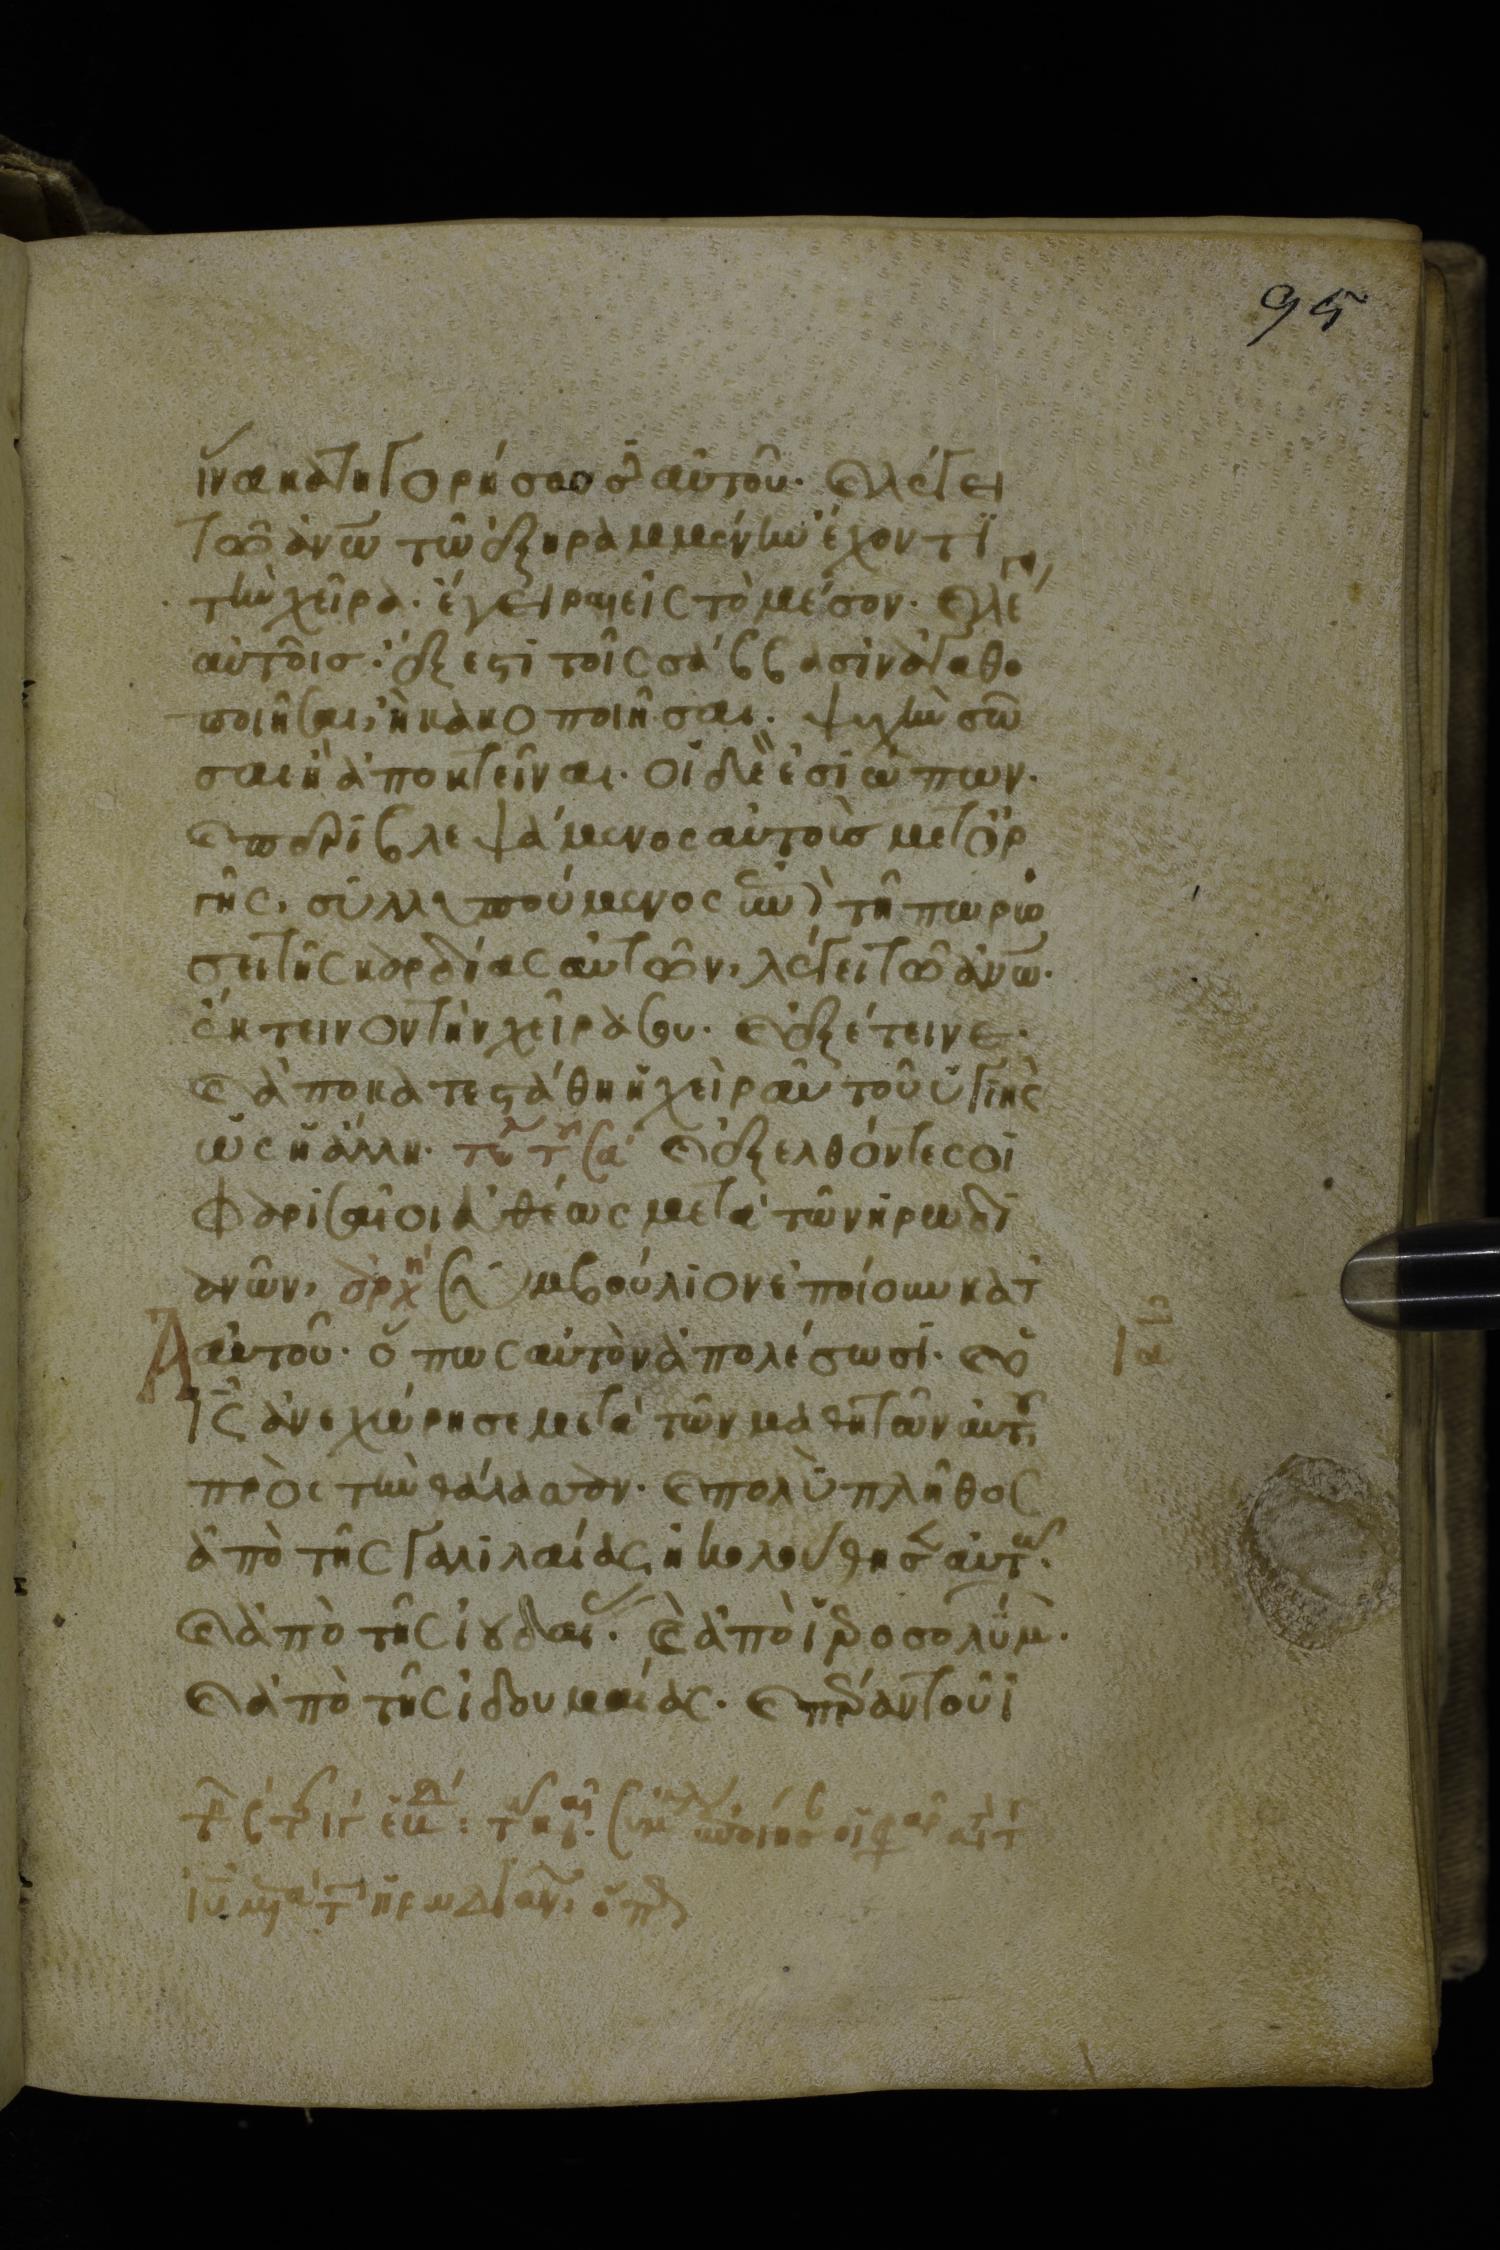 95
ἵνα κατηγορήσωσ αὐτοῦ. καὶ λέγει
τῶ ἀνω τῶ ἐξηραμμένην ἔχοντι
τὴν χεῖρα. ἔγειραι εἰς τὸ μέσον. καὶ λέγει
αὐτοῖσ. ἔξεστι τοῖς σάββασιν ἀγαθο
ποιῆσαι, ἢ κακοποιῆσαι. ψυχὴν σῶ
σαι ἢ ἀποκτεῖναι. οἱ δὲ ἐσιώπων.
καὶ περιβλεψάμενος αὐτοὺσ μετ ὀρ
γῆς, συλλυπούμενος ἐπὶ τῆ πωρώ
σει τῆς καρδίας αὐτῶν, λέγει τῶ ἀνω.
ἔκτεινον τὴν χεῖρα σου. καὶ ἐξέτεινε.
καὶ ἀποκατεστάθη ἡ χεὶρ αὐτοῦ ὑγιὴς
ὡς ἡ ἄλλη. καὶ ἐξελθόντες οἱ
φαρισαῖοι εὐθέως μετὰ τῶν ἡρωδι
ανῶν, ἀρχ συμβούλιον ἐποίουν κατ
αὐτοῦ. ὅπως αὐτὸν ἀπολέσωσι. καὶ ὁ
ις ἀνεχώρησε μετὰ τῶν μαθητῶν αὐτοῦ
πρὸς τὴν θάλασσαν. καὶ πολὺ πλῆθος
ἀπὸ τῆς γαλιλαίας, ἠκολούθησ αὐτῶ.
καὶ ἀπὸ τῆς ἰουδαί. καὶ ἀπὸ ἱεροσολύμ.
καὶ ἀπὸ τῆς ἰδουμαίας. καὶ πέραν τοῦ ἰ